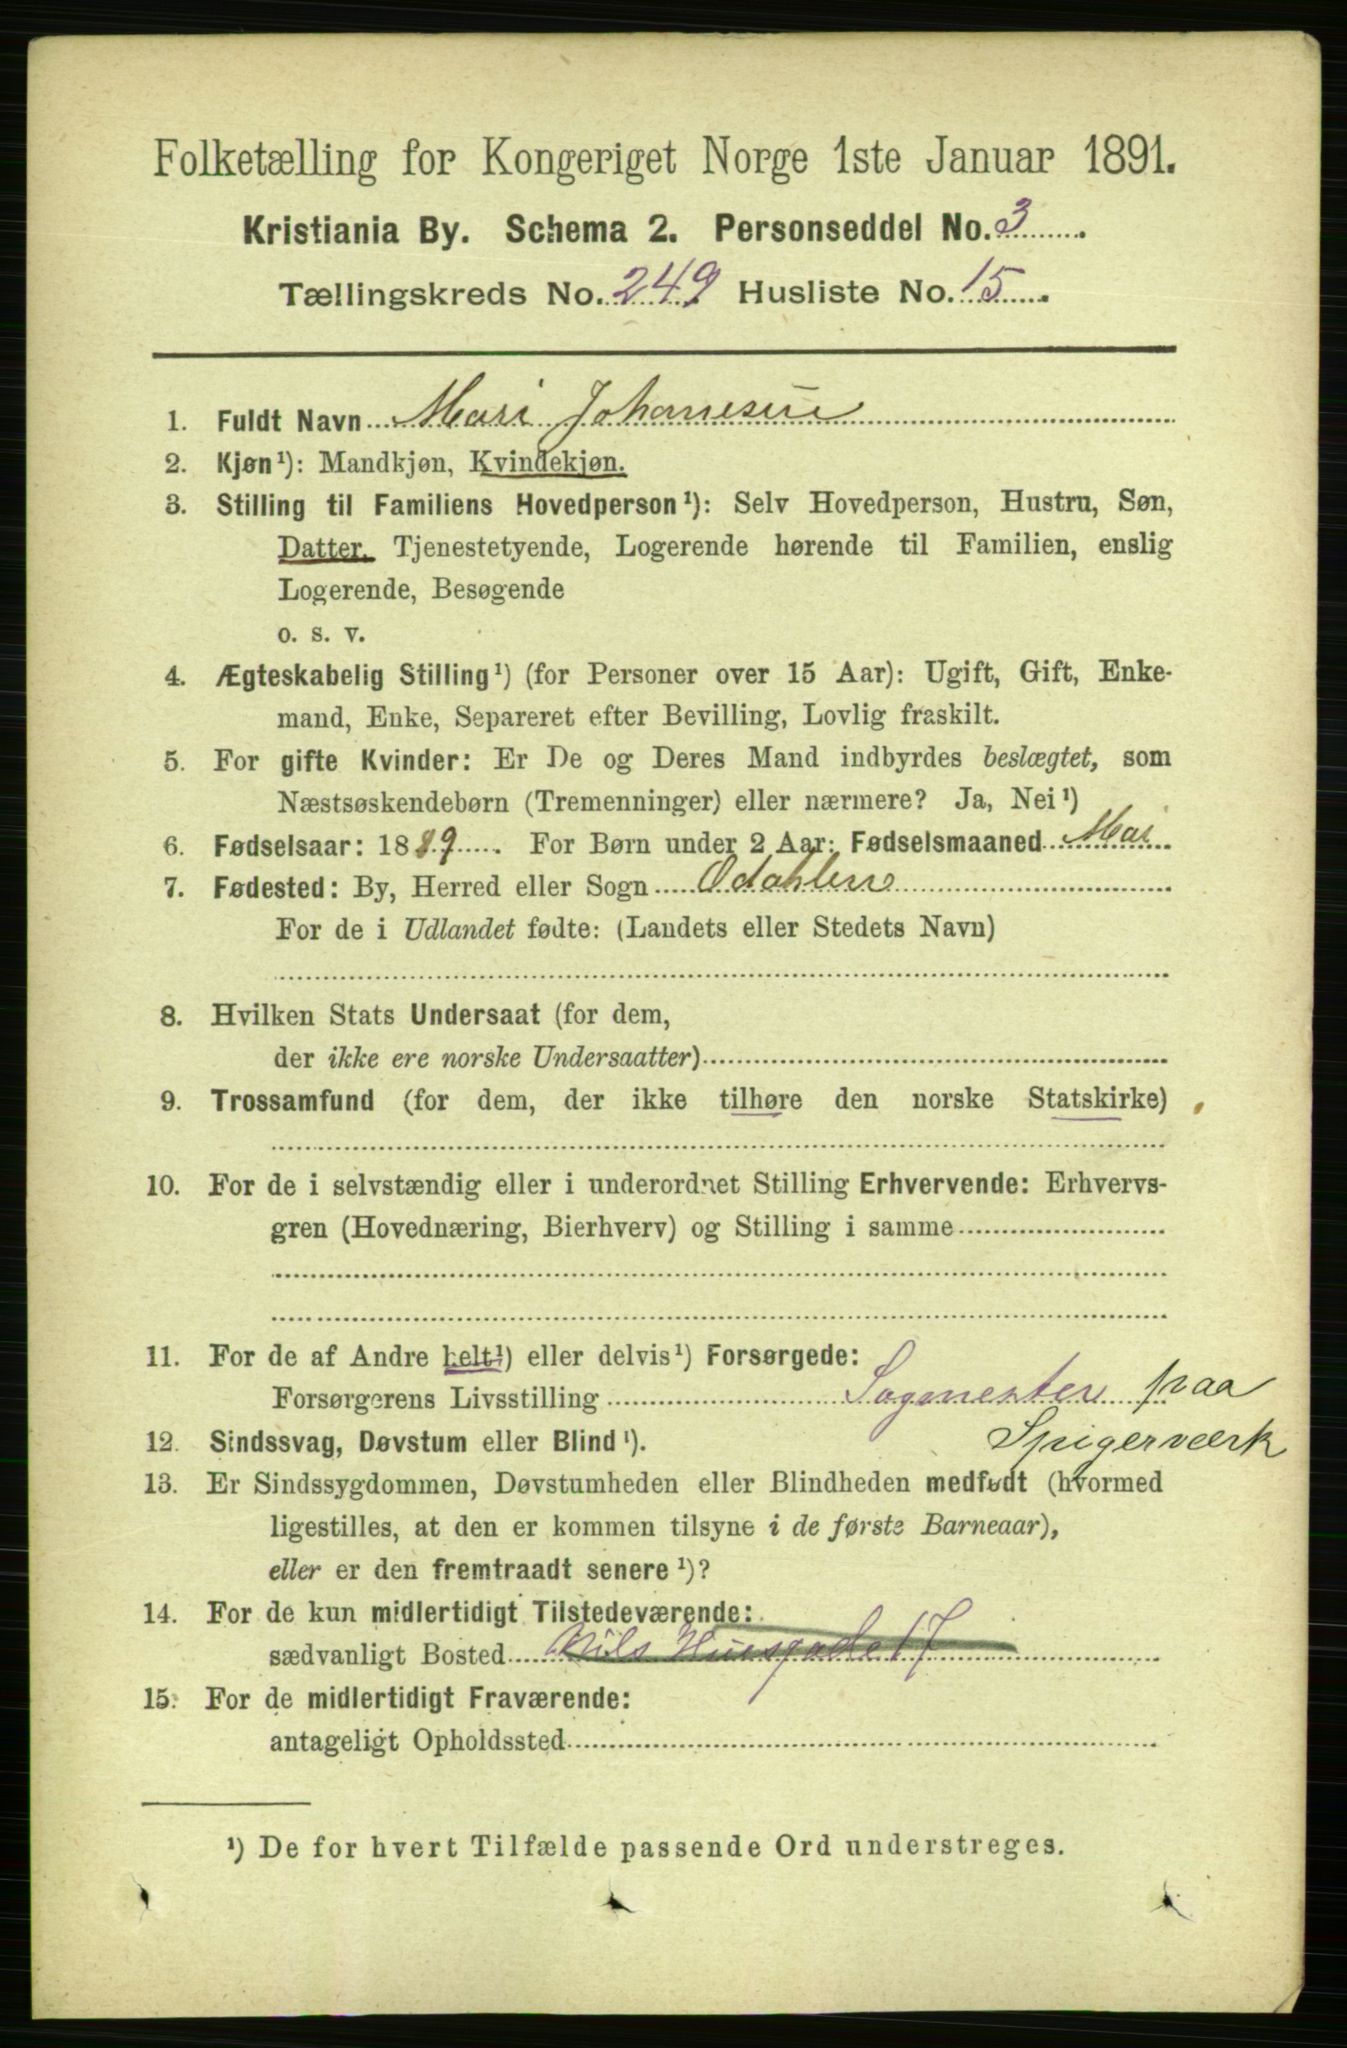 Folketælling for Kongeriget Norge 1ste Januar 1891.
Kristiania By. Schema 2. Personseddel No. 3
Tællingskreds No. 249 Husliste No. 15
1. Fuldt Navn Mari Johannesen
2. Kjøn¹): Mandkjøn, Kvindekjøn.
3. Stilling til Familiens Hovedperson¹): Selv Hovedperson, Hustru, Søn,
Datter, Tjenestetyende, Logerende hørende til Familien, enslig
Logerende, Besøgende
o. s. v.
4. Ægteskabelig Stilling¹) (for Personer over 15 Aar): Ugift, Gift, Enke-
mand, Enke, Separeret efter Bevilling, Lovlig fraskilt.
5. For gifte Kvinder: Er De og Deres Mand indbyrdes beslægtet, som
Næstsøskendebørn (Tremenninger) eller nærmere? Ja, Nei¹)
6. Fødselsaar: 1889. For Børn under 2 Aar: Fødselsmaaned Mai
7. Fødested: By, Herred eller Sogn Odahlen
For de i Udlandet fødte: (Landets eller Stedets Navn)
8. Hvilken Stats Undersaat (for dem,
der ikke ere norske Undersaatter)
9. Trossamfund (for dem, der ikke tilhøre den norske Statskirke)
10. For de i selvstændig eller i underordnet Stilling Erhvervende: Erhvervs-
gren (Hovednæring, Bierhverv) og Stilling i samme
11. For de af Andre helt¹) eller delvis¹) Forsørgede:
Forsørgerens Livsstilling Sagmester paa
Spigerværk
12. Sindssvag, Døvstum eller Blind¹).
13. Er Sindssygdommen, Døvstumheden eller Blindheden medfødt (hvormed
ligestilles, at den er kommen tilsyne i de første Barneaar),
eller er den fremtraadt senere¹)?
14. For de kun midlertidigt Tilstedeværende:
sædvanligt Bosted Nils Huesgade 17
15. For de midlertidigt Fraværende:
antageligt Opholdssted
¹) De for hvert Tilfælde passende Ord understreges.